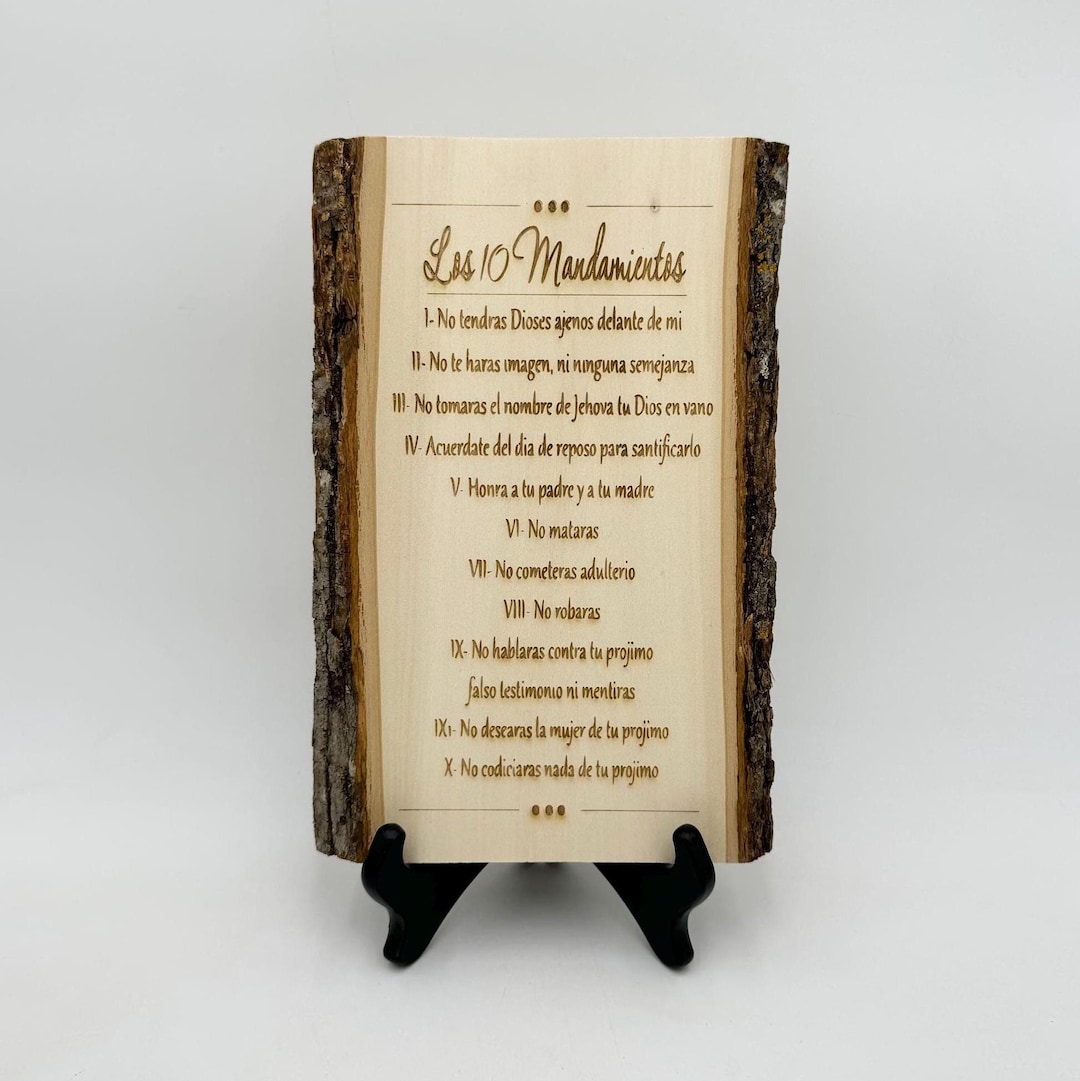 Los 10 Mandamientos
I- No tendras Dioses ajenos delante de mi
II- No te haras imagen, ni ninguna semejanza
III- No tomaras el nombre de Jehova tu Dios en vano
IV- Acuerdate del dia de reposo para santificarlo
V- Honra a tu padre y a tu madre
VI- No mataras
VII- No cometeras adulterio
VIII- No robaras
IX- No hablaras contra tu projimo
falso testimonio ni mentiras
IX1- No desearas la mujer de tu projimo
X- No codiciaras nada de tu projimo